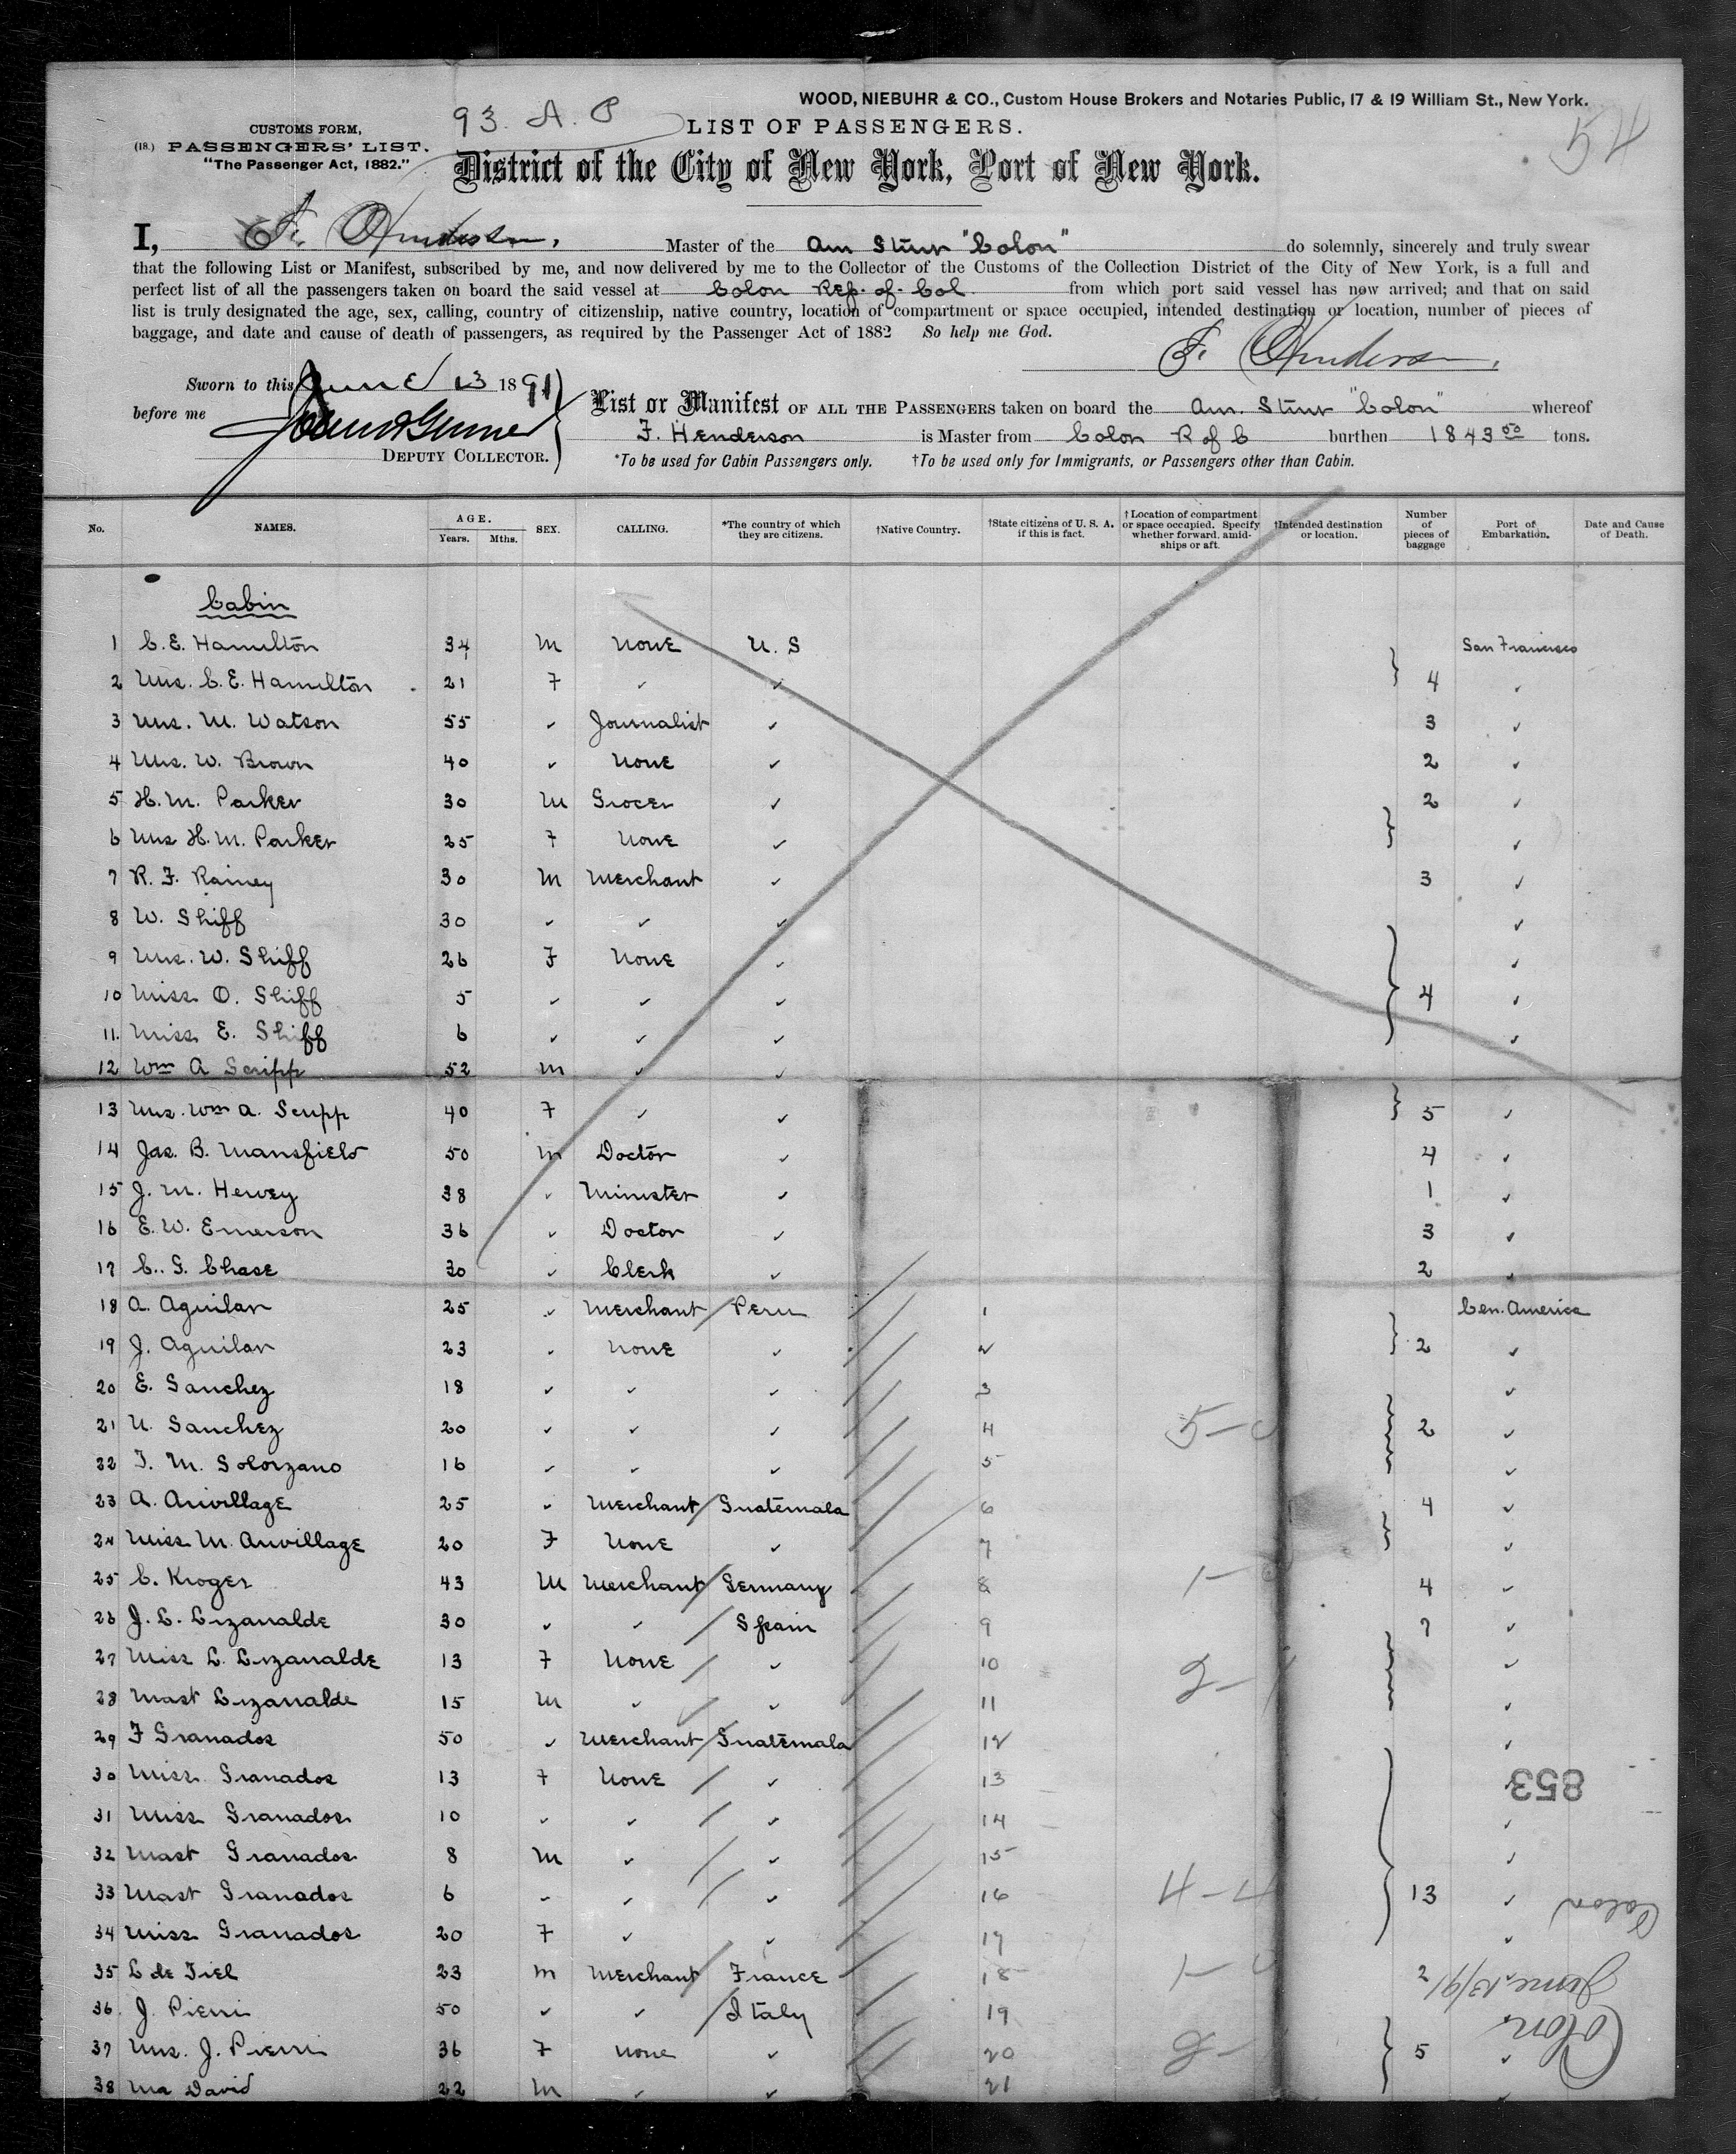 WOOD, NIEBUHR & CO., Custom House Brokers and Notaries Public, 17 & 19 William St., New York.
93. A. P
CUSTOMS FORM,
(18.) PASSENGERS' LIST.
"The Passenger Act, 1882."
LIST OF PASSENGERS.
District of the City of New York, Port of New York.
I, F. Henderson, Master of the Am Stmr "Colon" do solemnly, sincerely and truly swear
that the following List or Manifest, subscribed by me, and now delivered by me to the Collector of the Customs of the Collection District of the City of New York, is a full and
perfect list of all the passengers taken on board the said vessel at Colon Rep. of. Col. from which port said vessel has now arrived; and that on said
list is truly designated the age, sex, calling, country of citizenship, native country, location of compartment or space occupied, intended destination or location, number of pieces of
baggage, and date and cause of death of passengers, as required by the Passenger Act of 1882 So help me God.
F. Henderson.
Sworn to this June 13 1891
before me
DEPUTY COLLECTOR.
List or Manifest OF ALL THE PASSENGERS taken on board the Am. Stmr "Colon" whereof
F. Henderson is Master from Colon R of C burthen 1843 50 tons.
*To be used for Cabin Passengers only. †To be used only for Immigrants, or Passengers other than Cabin.
No. NAMES. AGE. Years. Mths. SEX. CALLING. *The country of which they are citizens. †Native Country. †State citizens of U. S. A. if this is fact. †Location of compartment or space occupied. Specify whether forward, amidships or aft. †Intended destination or location. Number of pieces of baggage Port of Embarkation. Date and Cause of Death.
Cabin
1 C. E. Hamilton 34 M None U. S San Francisco
2 Mrs. C. E. Hamilton 21 F ✓ ✓ 4 ✓
3 Mrs. M. Watson 55 ✓ Journalist ✓ 3 ✓
4 Mrs. W. Brown 40 ✓ None ✓ 2 ✓
5 H. M. Parker 30 M Grocer ✓ 2 ✓
6 Mrs H. M. Parker 25 F None ✓ ✓
7 R. F. Rainey 30 M Merchant ✓ 3 ✓
8 W. Shiff 30 ✓ ✓ ✓ ✓
9 Mrs. W. Shiff 26 F None ✓ ✓
10 Miss O. Shiff 5 ✓ ✓ ✓ 4 ✓
11. Miss E. Shiff 6 ✓ ✓ ✓ ✓
12 Wm A Scripp 52 M ✓ ✓
13 Mrs. Wm A. Scripp 40 F ✓ ✓ 5 ✓
14 Jas. B. Mansfield 50 M Doctor ✓ 4 ✓
15 J. M. Hervey 38 ✓ Minister ✓ 1 ✓
16 E. W. Emerson 36 ✓ Doctor ✓ 3 ✓
17 C. G. Chase 30 ✓ Clerk ✓ 2 ✓
18 A. Aguilar 25 ✓ Merchant Peru 1 Cen. America
19 J. Aguilar 23 ✓ None ✓ 2 2 ✓
20 E. Sanchez 18 ✓ ✓ ✓ 3 ✓
21 U. Sanchez 20 ✓ ✓ ✓ 4 5-0 2 ✓
22 F. M. Solorzano 16 ✓ ✓ ✓ 5 ✓
23 A. Anvillage 25 ✓ Merchant Guatemala 6 4 ✓
24 Miss M. Anvillage 20 F None ✓ 7 ✓
25 C. Kroger 43 M Merchant Germany 8 1- 4 ✓
26 J. L. Lizanalde 30 ✓ ✓ Spain 9 7 ✓
27 Miss L. Lizanalde 13 F None ✓ 10 2-1 ✓
28 Mast Lizanalde 15 M ✓ ✓ 11 ✓
29 F Granados 50 ✓ Merchant Guatemala 12 ✓
30 Miss Granados 13 F None ✓ 13 ✓
853
31 Miss Granados 10 ✓ ✓ ✓ 14 ✓
32 Mast Granados 8 M ✓ ✓ 15 ✓
33 Mast Granados 6 ✓ ✓ ✓ 16 4-4 13 ✓
Colon
34 Miss Granados 20 F ✓ ✓ 17 ✓
35 L de Tiel 23 M Merchant France 18 1-0 2
June 13/91
36. J. Pierri 50 ✓ ✓ Italy 19
Colon
37 Mrs. J. Pierri 36 F None ✓ 20 2- 5 ✓
38 Ma David 22 M ✓ ✓ 21 ✓